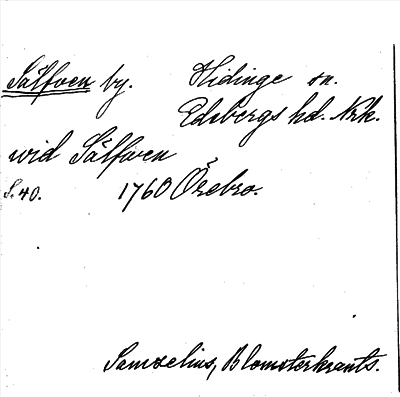 Sälfven by. Hidinge sn.
Edsbergs hd. Nrk.
wid Sälfven
S. 40. 1760 Örebro.
Samzelius, Blomsterkrants.